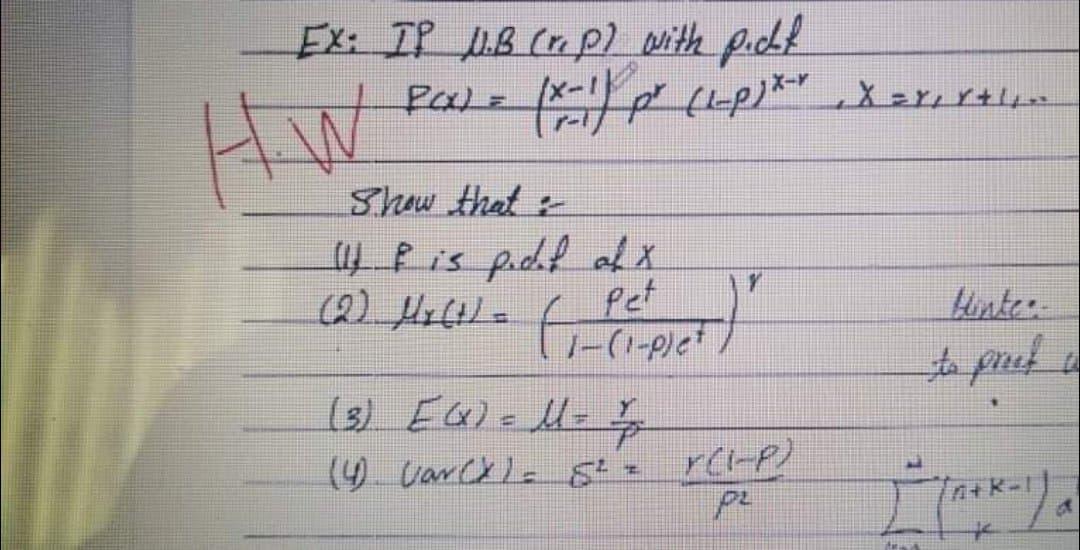 EX: If N.B (r, p) with p.d.f
P(x) = (x-1 r-1) p^r (1-p)^{x-r}, X = r, r+1, ...
H.W
Show that :-
(1) P is p.d.f of X
(2) M_x(t) = ( pe^t / 1-(1-p)e^t )^r
Hinte:-
to proof
(3) E(x) = M = r/p
(4) Var(X) = δ² = r(1-p) / p²
Σ (n+k-1 k) a